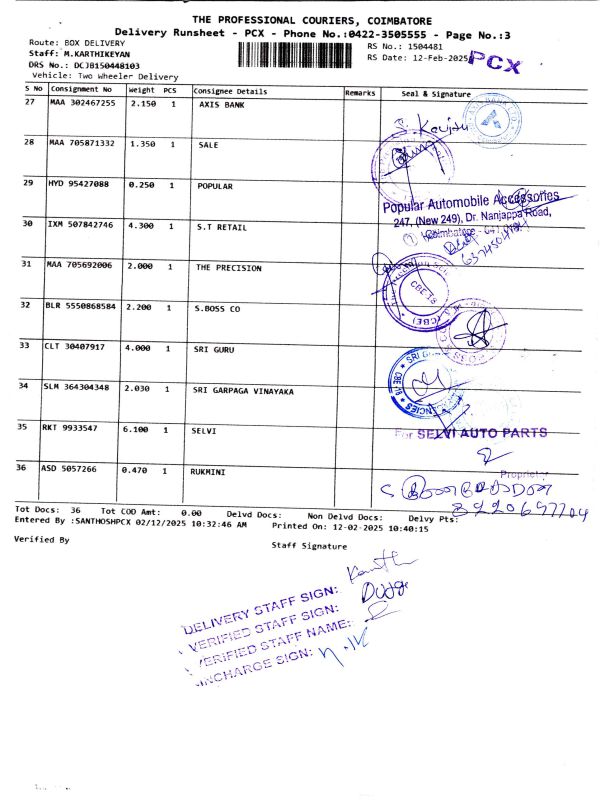 THE PROFESSIONAL COURIERS, COIMBATORE
Delivery Runsheet - PCX - Phone No.:0422-3505555 - Page No.:3
Route: BOX DELIVERY
RS No.: 1504481
Staff: M.KARTHIKEYAN
RS Date: 12-Feb-2025
PCX
DRS No.: DCJB150448103
Vehicle: Two Wheeler Delivery
S No Consignment No Weight PCS Consignee Details Remarks Seal & Signature
27 MAA 302467255 2.150 1 AXIS BANK
28 MAA 705871332 1.350 1 SALE
29 HYD 95427088 0.250 1 POPULAR
Popular Automobile Accessories
247, (New 249), Dr. Nanjappa Road,
30 IXM 507842746 4.300 1 S.T RETAIL
31 MAA 705692006 2.000 1 THE PRECISION
CBE 18
32 BLR 5550868584 2.200 1 S.BOSS CO
33 CLT 30407917 4.000 1 SRI GURU
34 SLM 364304348 2.030 1 SRI GARPAGA VINAYAKA
35 RKT 9933547 6.100 1 SELVI
For SELVI AUTO PARTS
Proprietor
36 ASD 5057266 0.470 1 RUKMINI
Tot Docs: 36 Tot COD Amt: 0.00 Delvd Docs: Non Delvd Docs: Delvy Pts:
Entered By :SANTHOSHPCX 02/12/2025 10:32:46 AM Printed On: 12-02-2025 10:40:15
Verified By
Staff Signature
DELIVERY STAFF SIGN:
VERIFIED STAFF SIGN:
VERIFIED STAFF NAME:
INCHARGE SIGN: